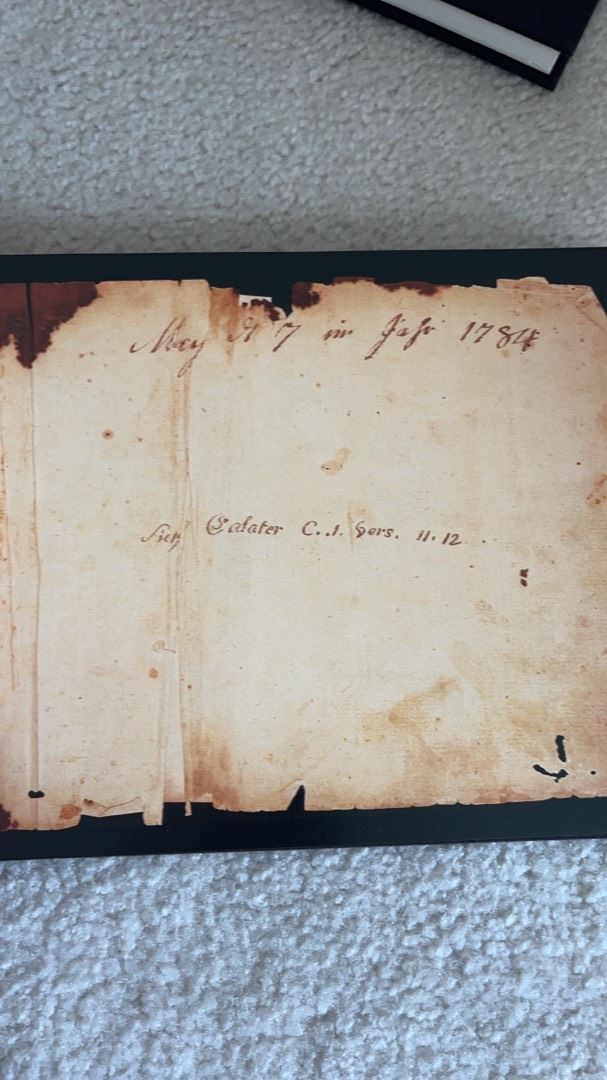 May d 7 im Jahr 1784
Sieh Galater C. 1. Vers. 11. 12